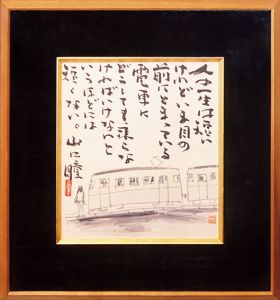 人の一生は短い
けれどいま目の
前にとまっている
電車に
どうしても乗らな
ければいけないと
いうほどには
短くない。山口瞳